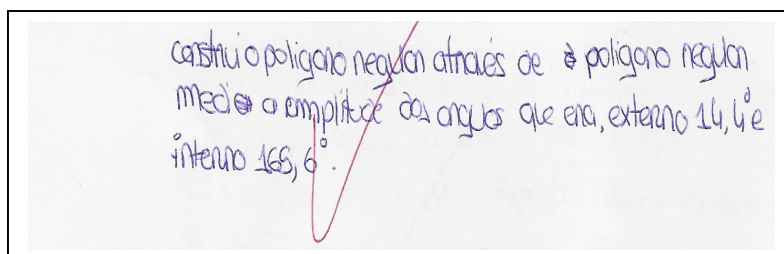 construi o poligono regular através de o poligono regular
medi o a amplitude dos angulos que era, externo 14,4° e
interno 165,6°.